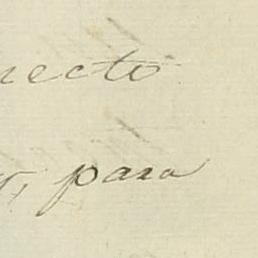 recto
, para